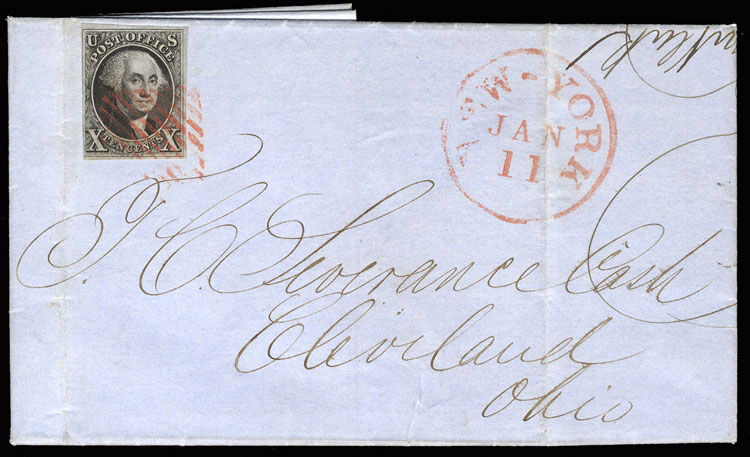 U S
POST OFFICE
X TEN CENTS X
NEW-YORK
JAN
11
T. C. Severance Cash
Cleveland
Ohio